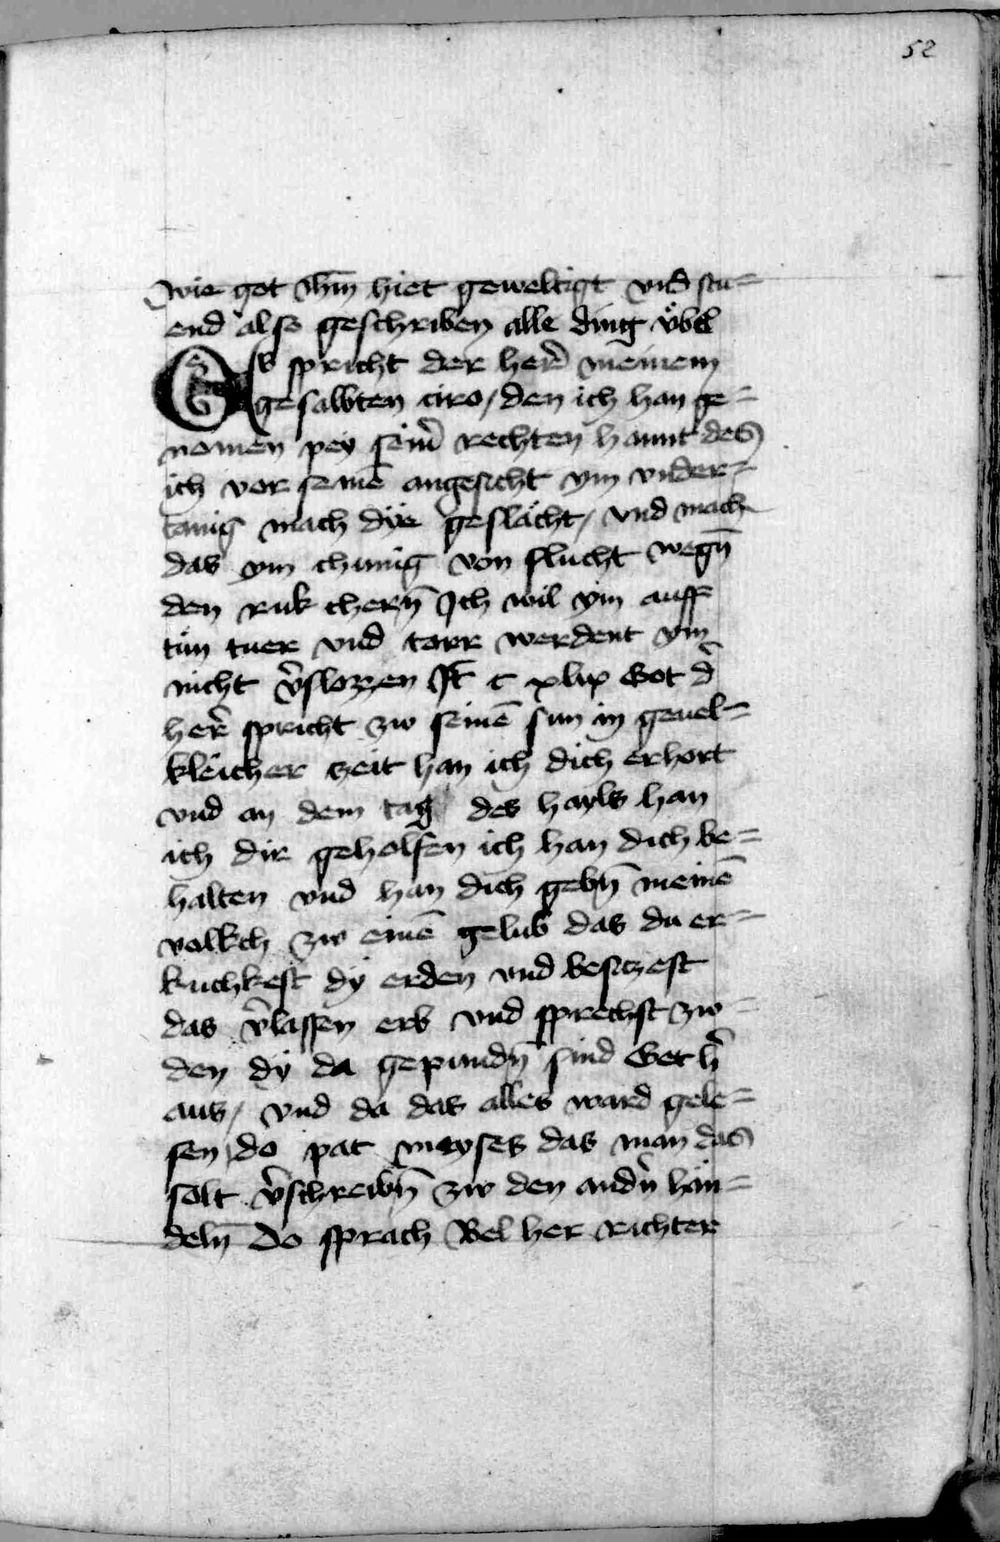 52
wie got ihm̄ hiet geweltigt vnd stu=
end also geschriben alle ding vͤbel
Es spricht der her̄ meinem
gesalbten ciro / den ich han ge=
nomen pey sein̄ rechten hannt des
ich vor seinē angesicht ym vnder=
tanig mach dÿe geslächt / vnd mach
das ym chunig von flucht wegn̄
den ruk chern̄ Ich wil ym auff
tün tuer vnd torr werdent ym
nicht v̄slozzen It c xlix Got d̄
her̄ spricht zw seinē sun in geuel=
kleicher zeit han ich dich erhort
vnd an dem tag des hayls han
ich dir geholfen ich han dich be=
halten vnd han dich gebn̄ meinē
volkch zw einē gelub das du er=
kuchkest dÿ erden vnd besitzest
das v̄lassen erb vnd sprechst zw=
den dÿ da gepundn̄ sind Get h̄
aus / vnd da das alles ward gele=
sen do pat moyses das man das
solt v̄schreibn̄ zw den andn̄ hän=
deln̄ Do sprach Bel her richter